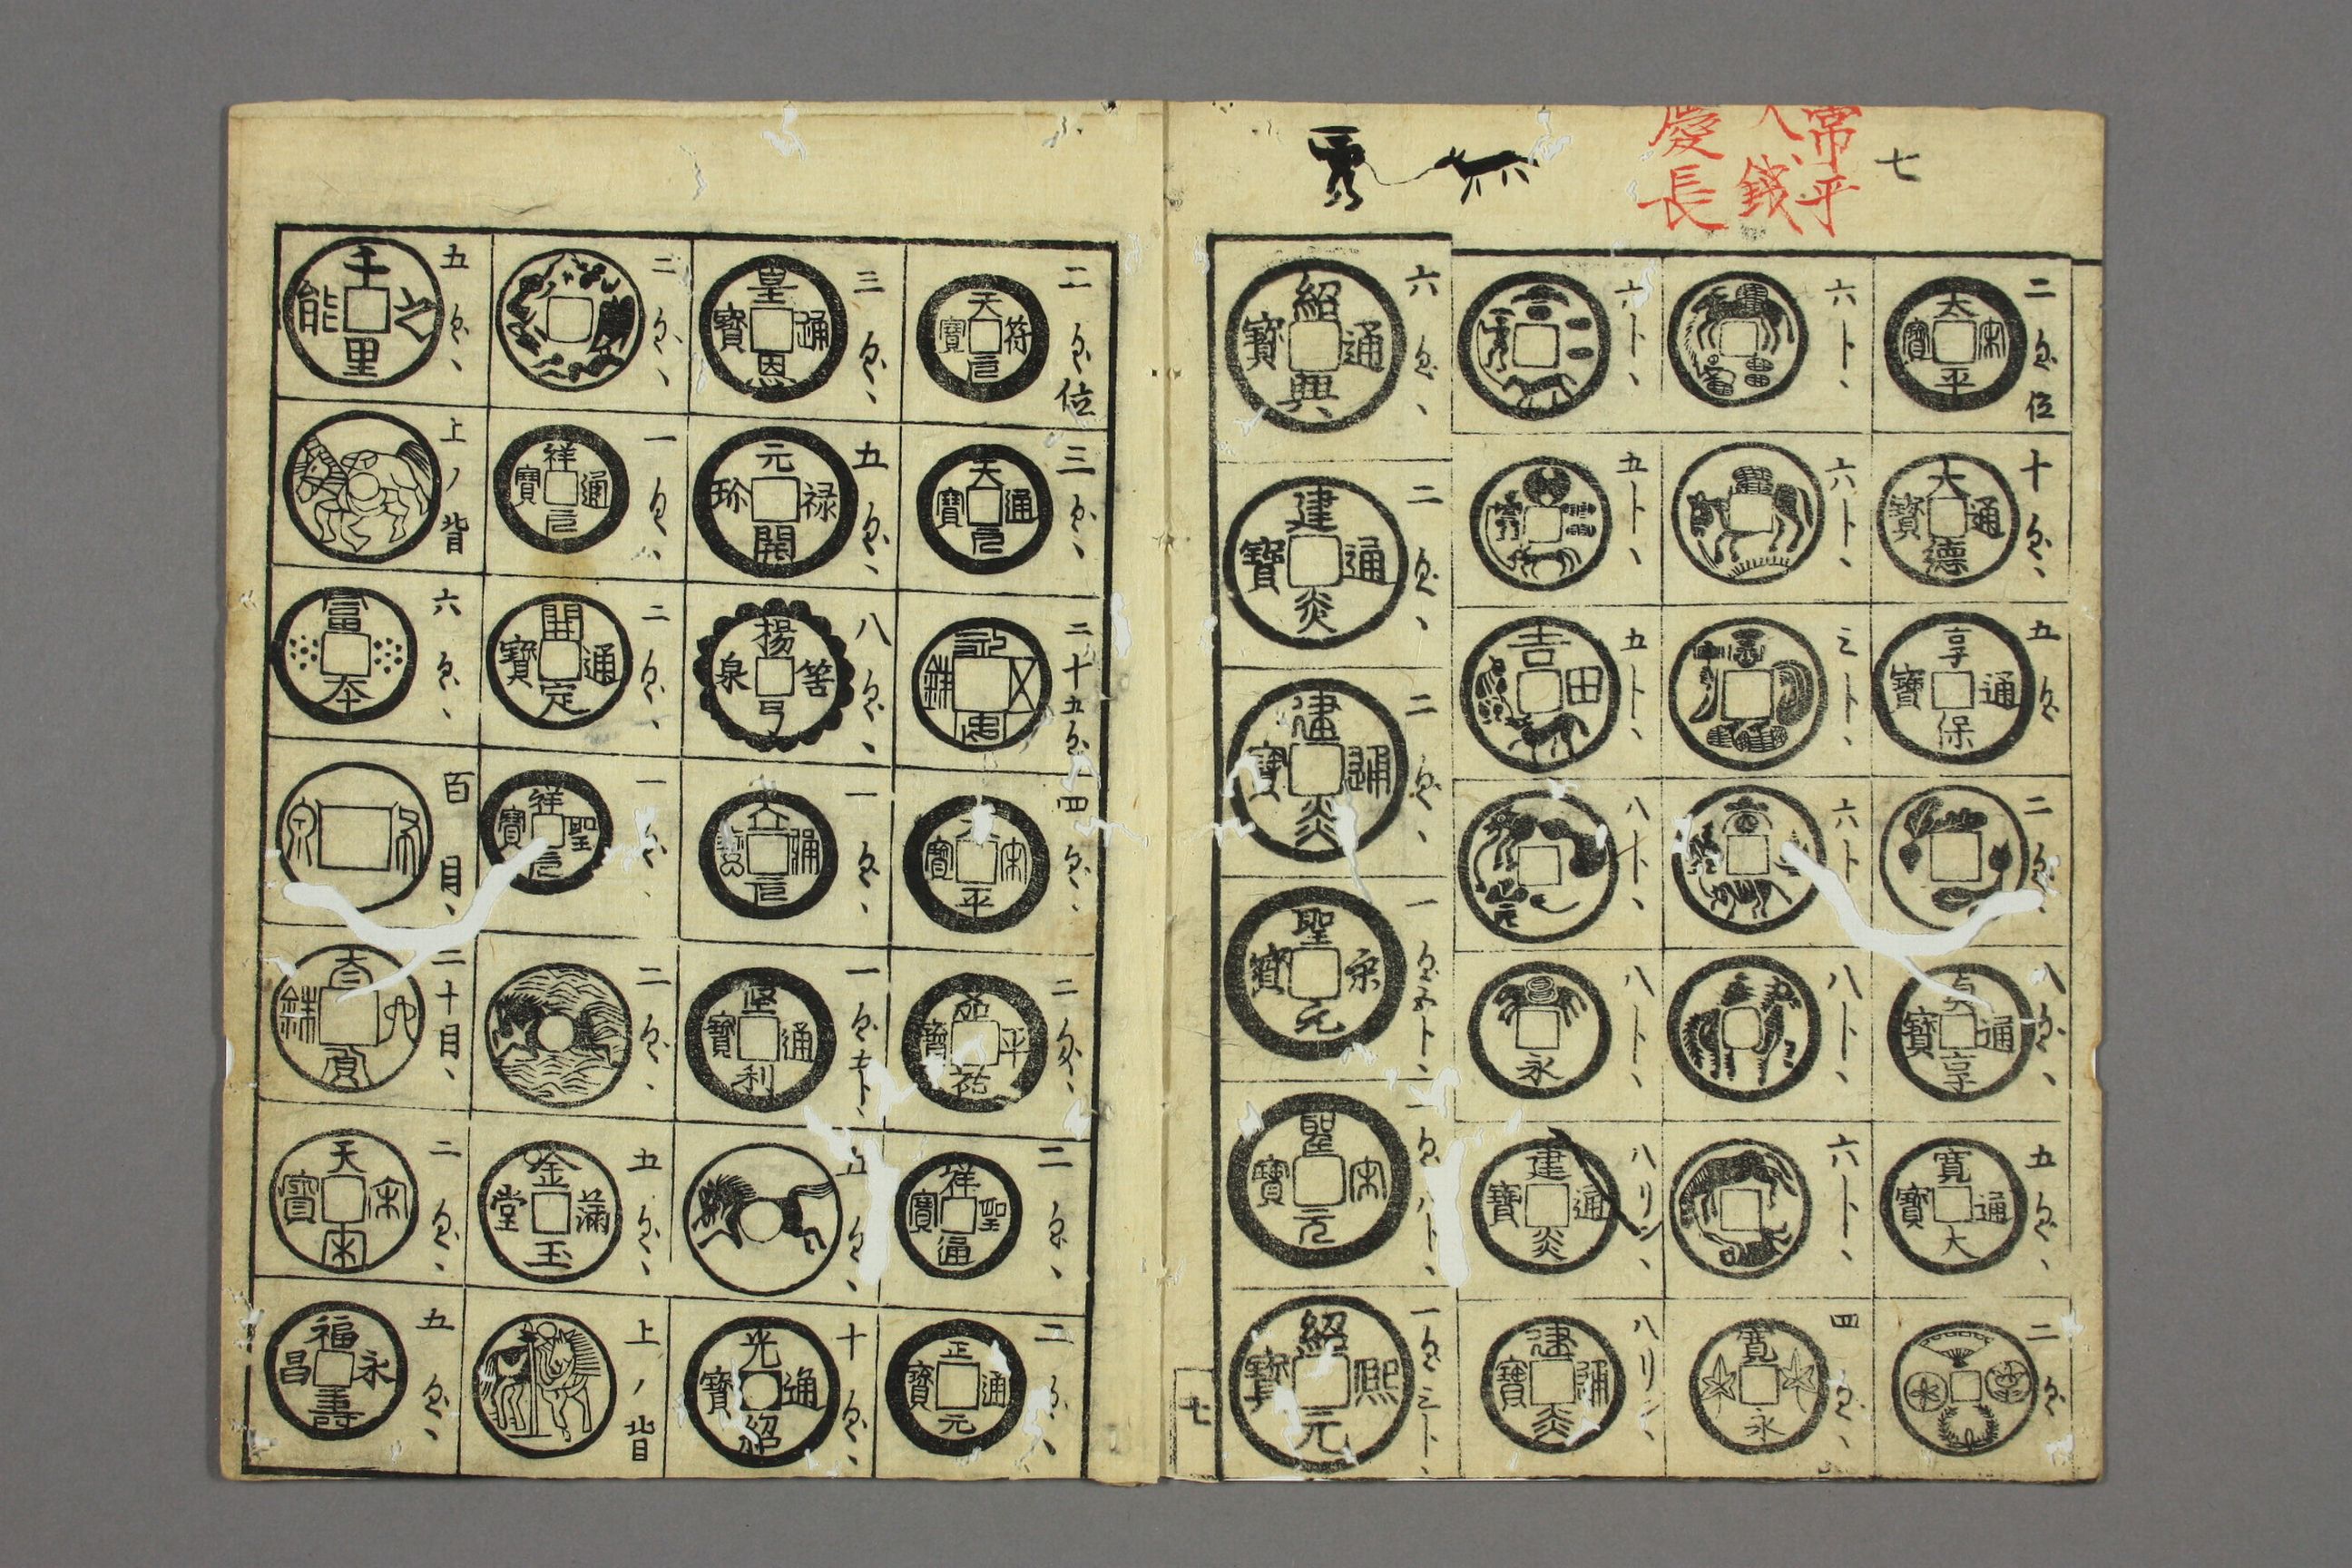 七
常平
八銭
慶長
太平宋寶 二匁位
大德通寶 十匁、
享保通寶 五匁
二匁、
貞享通寶 八匁、
寛大通寶 五匁、
二匁
六ト、
六ト、
三ト、
六ト
八ト、
六ト、
寛永 四匁、
六ト、
五ト、
吉田 五ト、
八ト、
永 八ト、
建炎通寶 八リン、
建炎通寶 八リン、
紹興通寶 六匁、
建炎通寶 二匁、
建炎通寶 二匁、
聖元宋寶 一匁五ト、
聖元宋寶 一匁八ト、
紹元熙寶 一匁三ト、
七
天符寶 二匁位
天通寶 三匁、
五銖 二十五匁
平宋寶 四匁、
平祐寶 二匁、
祥通聖寶 二匁、
正元通寶 二匁、
皇恩通寶 三匁、
元開禄珎 五匁、
揚弓箸泉 八匁、
一匁、
堅利通寶 一匁
五匁、
光紹通寶 十匁、
二匁、
祥元通寶 一匁、
開定通寶 二匁、
祥元聖寶 一匁、
二匁、
金玉滿堂 五匁、
上ノ背
千里之能 五匁、
上ノ背
富本 六匁、
百目、
二十目、
天宋寶 二匁、
福壽永昌 五匁、